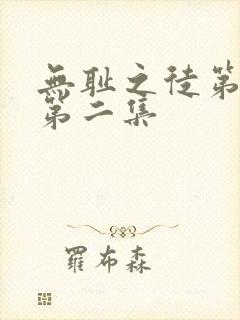 無耻之徒第
第二集
羅布森